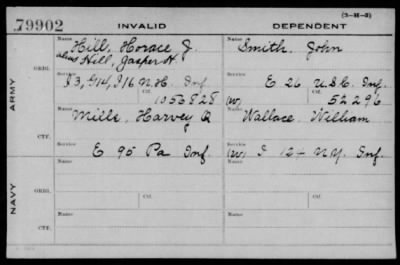 79902
INVALID
DEPENDENT
(3-M-3)
ARMY
ORIG.
Name
Hill, Horace J.
alias Hill, Jasper H.
Service
I 3, G 14, I 16 N.H. Inf
Ctf.
1053828
Name
Smith, John
Service
E 26 U.S.C. Inf.
(W)
Ctf.
52296
CTF.
Name
Mills, Harvey Q
Service
E 95 Pa Inf.
Name
Wallace William
Service
(W) I 124 N.Y. Inf.
NAVY
ORIG.
Name
Service
Ctf.
Name
Service
Ctf.
CTF.
Name
Service
Name
Service